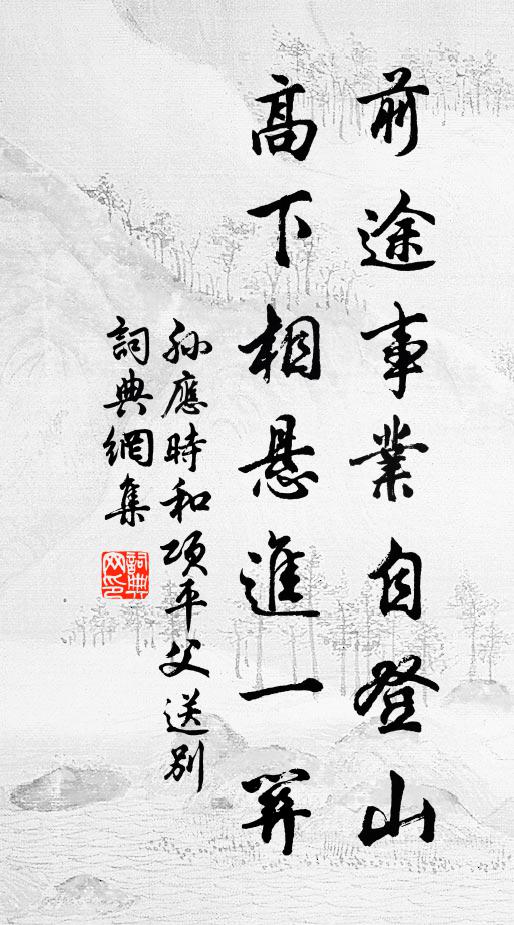 前途事業自登山
高下相悬進一關
孫應時和項平父送别
詞典網集
詞典网印